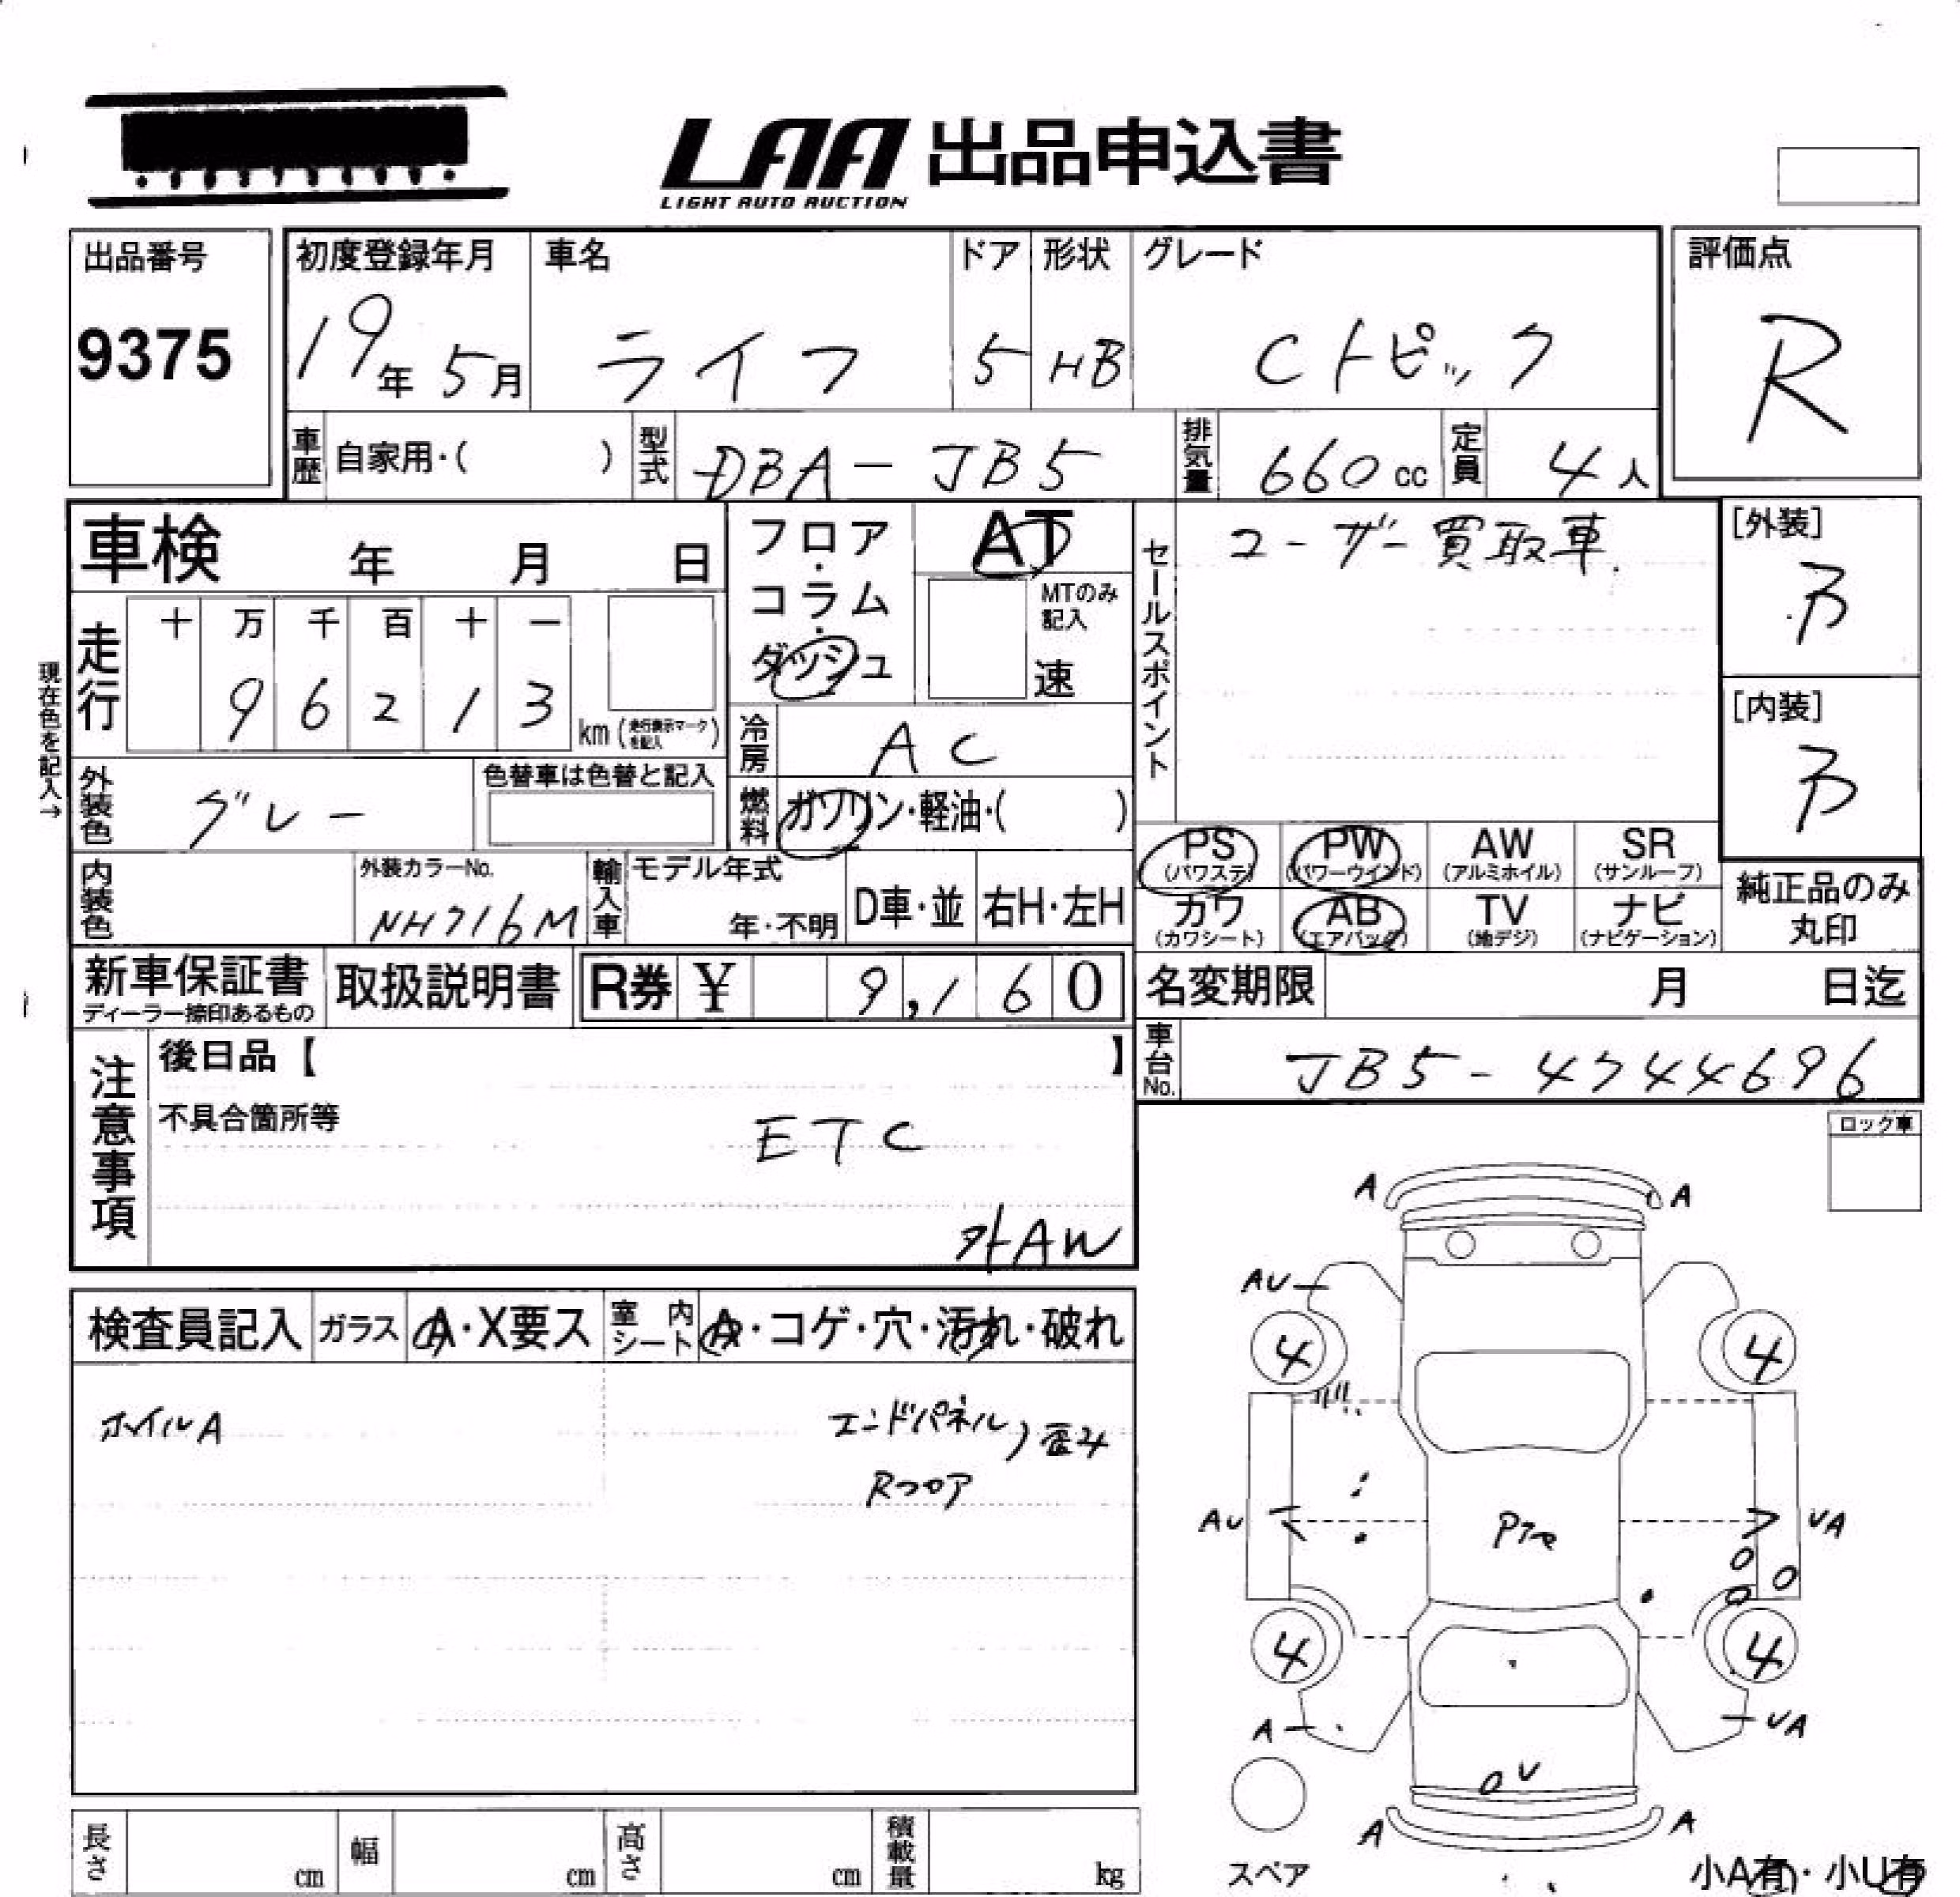 LAA 出品申込書
LIGHT AUTO AUCTION
出品番号
9375
初度登録年月 車名 ドア 形状 グレード
19年 5月 ライフ 5 HB Cトピック
評価点
R
車歴 自家用・( ) 型式 DBA-JB5 排気量 660cc 定員 4人
車検 年 月 日
フロア・コラム・ダッシュ
AT
MTのみ記入
速
セールスポイント
ユーザー買取車.
[外装]
B
[内装]
B
現在色を記入→
走行 十 万 千 百 十 一
9 6 2 1 3 km (走行表示マークを記入)
冷房 AC
外装色 グレー 色替車は色替と記入
燃料 ガソリン・軽油・( )
PS (パワステ) PW (パワーウインド) AW (アルミホイル) SR (サンルーフ)
カワ (カワシート) AB (エアバッグ) TV (地デジ) ナビ (ナビゲーション)
純正品のみ
丸印
内装色 外装カラーNo. NH716M 輸入車 モデル年式 年・不明 D車・並 右H・左H
新車保証書 ディーラー捺印あるもの 取扱説明書 R券 ¥ 9,160
名変期限 月 日迄
車台No. JB5-4744696
注意事項
後日品【 】
不具合箇所等
ETC
外AW
ロック車
検査員記入 ガラス A・X要ス 室内シート A・コゲ・穴・汚れ・破れ
ホイルA エンドパネル 歪み
Rフロア
A A
AU
4 4
AU VA
4 4
A VA
V
A A
スペア
小A有・小U有
長さ cm 幅 cm 高さ cm 積載量 kg